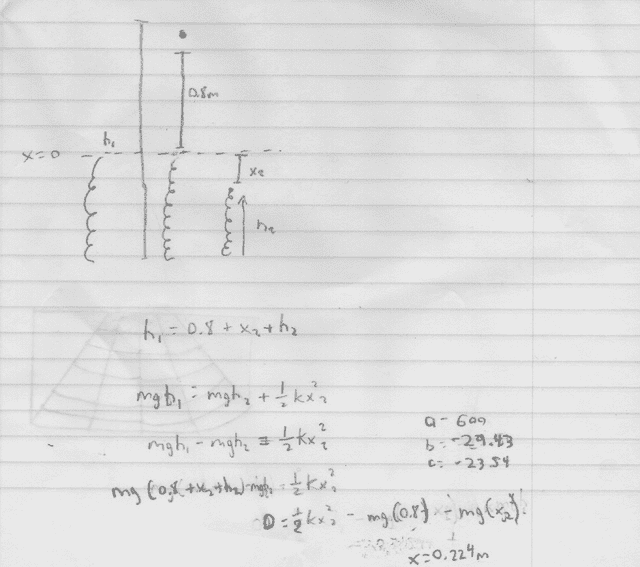 0.8m
h₁
x=0
x₂
h₂
h₁ = 0.8 + x₂ + h₂
mgh₁ = mgh₂ + ½ kx₂²
mgh₁ - mgh₂ = ½ kx₂²
mg (0.8 + x₂ + h₂) - mgh₂ = ½ kx₂²
0 = ½ kx₂² - mg(0.8) - mg(x₂)
a = 600
b = -29.43
c = -23.54
x=0.224m